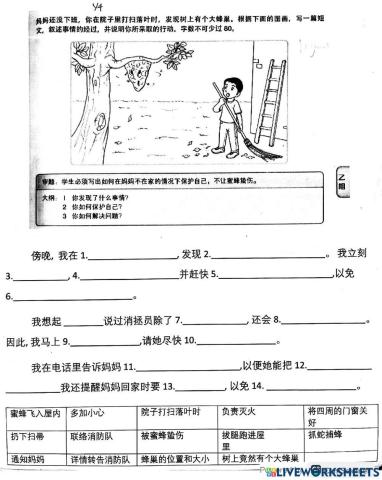 Y4
妈妈还没下班，你在院子里打扫落叶时，发现树上有个大蜂巢。根据下面的图画，写一篇短
文，叙述事情的经过，并说明你所采取的行动。字数不可少过 80。
审题：学生必须写出如何在妈妈不在家的情况下保护自己，不让蜜蜂蛰伤。
大纲： 1 你发现了什么事情？
2 你如何保护自己？
3 你如何解决问题？
乙组
傍晚，我在 1.____________, 发现 2.____________。 我立刻
3.____________, 4.____________并赶快 5.____________,以免
6.____________。
我想起 ______说过消拯员除了 7.____________, 还会 8.____________.
因此, 我马上 9.____________,请她尽快 10.____________。
我在电话里告诉妈妈 11.____________,以便她能把 12.____________
____________我还提醒妈妈回家时要 13.____________, 以免 14. ____________。
蜜蜂飞入屋内 多加小心 院子打扫落叶时 负责灭火 将四周的门窗关好
扔下扫帚 联络消防队 被蜜蜂蛰伤 拔腿跑进屋里 抓蛇捕蜂
通知妈妈 详情转告消防队 蜂巢的位置和大小 树上竟然有个大蜂巢
LIVEWORKSHEETS